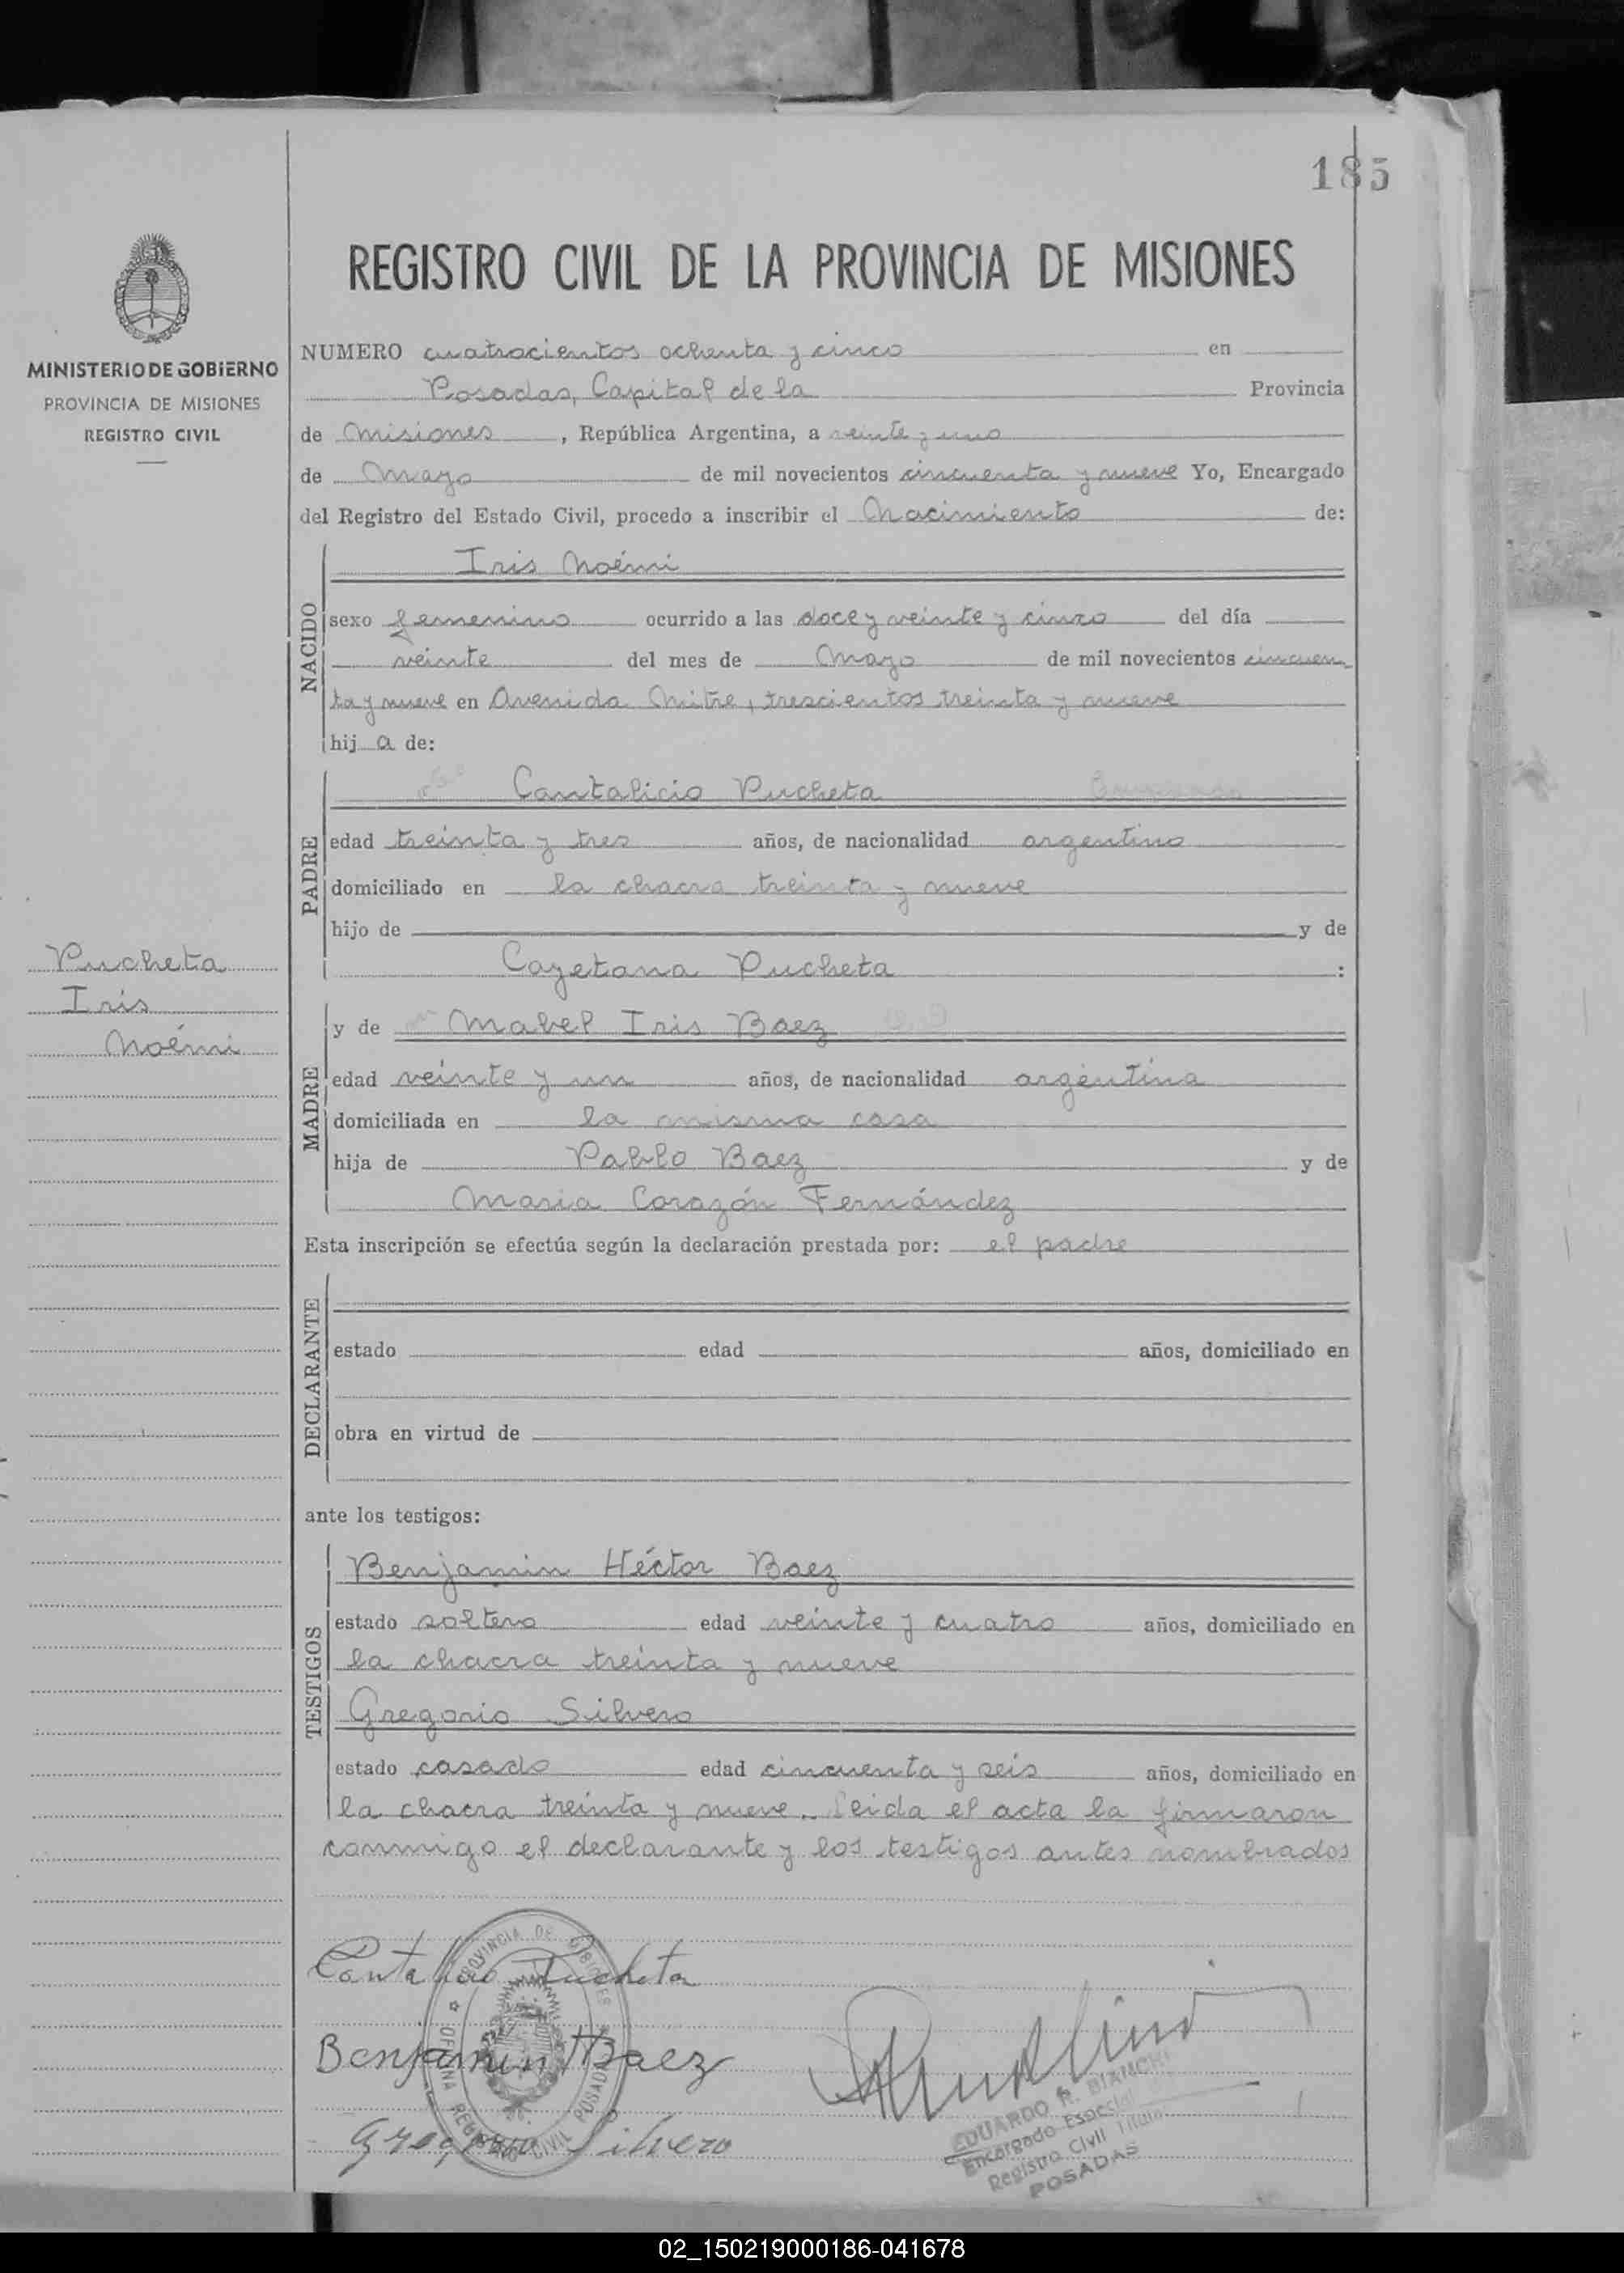 185
MINISTERIO DE GOBIERNO
PROVINCIA DE MISIONES
REGISTRO CIVIL
Pucheta
Iris
Noémi
REGISTRO CIVIL DE LA PROVINCIA DE MISIONES
NUMERO cuatrocientos ochenta y cinco en
Posadas, Capital de la Provincia
de Misiones, República Argentina, a veinte y uno
de Mayo de mil novecientos cincuenta y nueve Yo, Encargado
del Registro del Estado Civil, procedo a inscribir el Nacimiento de:
NACIDO
Iris Noémi
sexo femenino ocurrido a las doce y veinte y cinco del día
veinte del mes de Mayo de mil novecientos cincuen
ta y nueve en Avenida Mitre, trescientos treinta y nueve
hij a de:
PADRE
Cantalicio Pucheta
edad treinta y tres años, de nacionalidad argentino
domiciliado en la chacra treinta y nueve
hijo de y de
Cayetana Pucheta :
MADRE
y de Mabel Iris Baez
edad veinte y un años, de nacionalidad argentina
domiciliada en la misma casa
hija de Pablo Baez y de
Maria Corazón Fernández
Esta inscripción se efectúa según la declaración prestada por: el padre
DECLARANTE
estado edad años, domiciliado en
obra en virtud de
ante los testigos:
TESTIGOS
Benjamin Héctor Baez
estado soltero edad veinte y cuatro años, domiciliado en
la chacra treinta y nueve
Gregorio Silvero
estado casado edad cincuenta y seis años, domiciliado en
la chacra treinta y nueve. Leida el acta la firmaron
conmigo el declarante y los testigos antes nombrados
Cantalicio Pucheta
Benjamin H Baez
Gregorio Silvero
PROVINCIA DE MISIONES
OFICINA REGISTRO CIVIL POSADAS
EDUARDO R. BIANCHI
Encargado Especial
Registro Civil Titular
POSADAS
02_150219000186-041678